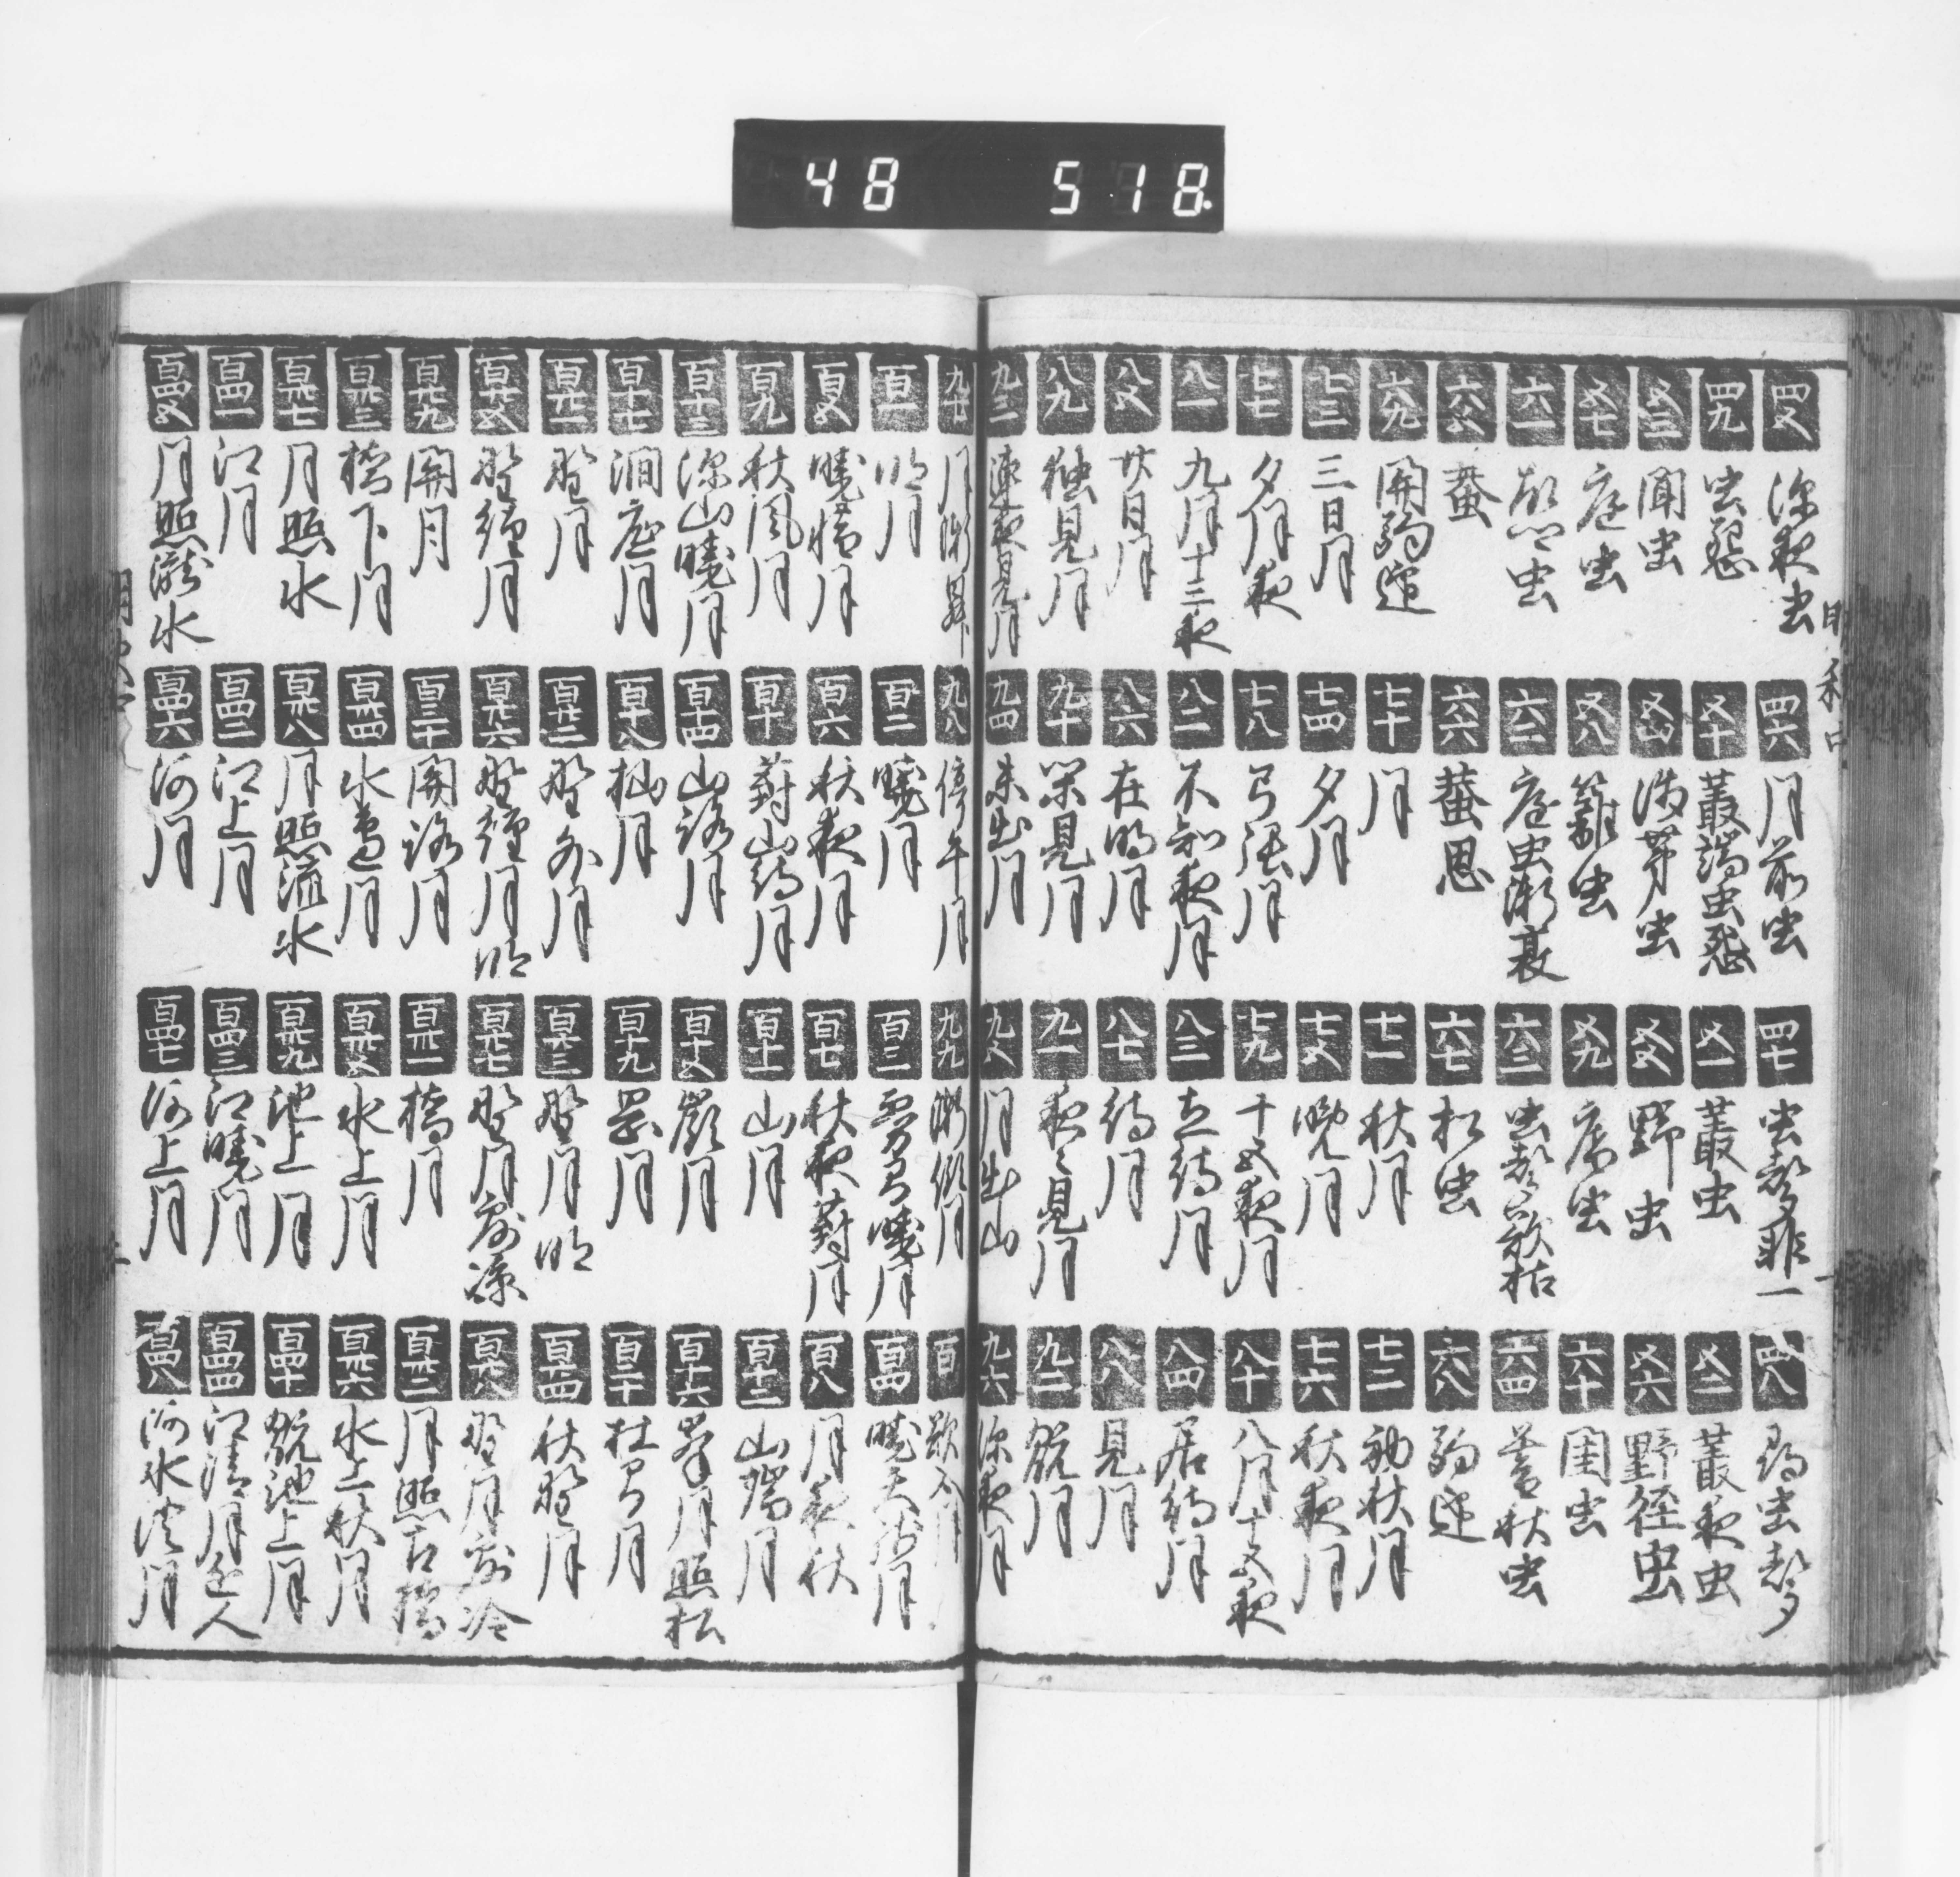 48 518
四五 深夜虫
四六 月前虫
四七 虫声非一
四八 尋虫声
四九 虫怨
五十 叢端虫愁
五一 叢虫
五二 叢夜虫
五三 聞虫
五四 浅茅虫
五五 野虫
五六 野径虫
五七 庭虫
五八 籬虫
五九 虫
六十 閨虫
六一 虫
六二 庭虫漸衰
六三 虫声欲枯
六四 暮秋虫
六五 蛬
六六 蛬思
六七 松虫
六八 駒迎
六九 関駒迎
七十 月
七一 秋月
七二 初秋月
七三 三日月
七四 夕月
七五 晩月
七六 秋夜月
七七 夕月夜
七八 弓張月
七九 十五夜月
八十 八月十五夜
八一 九月十三夜
八二 不知夜月
八三 立待月
八四 居待月
八五 廿日月
八六 在明月
八七 待月
八八 見月
八九 独見月
九十 閑見月
九一 夜々見月
九二 翫月
九三 連夜見月
九四 未出月
九五 月出山
九六 深夜月
九七 月漸昇
九八 停午月
九九 漸傾月
百 欲入月
百一 明月
百二 暁月
百三 暁月
百四 暁天月
百五 暁惜月
百六 秋夜月
百七 秋夜対月
百八 月夜秋
百九 秋風月
百十 対山待月
百十一 山月
百十二 山端月
百十三 深山暁月
百十四 山路月
百十五 嶺月
百十六 峯月照松
百十七 澗底月
百十八 杣月
百十九 岡月
百二十 杜間月
百廿一 野月
百廿二 野外月
百廿三 野月明
百廿四 秋野月
百廿五 野径月
百廿六 野径月明
百廿七 野月露凉
百廿八 野月露冷
百廿九 関月
百三十 関路月
百卅一 橋月
百卅二 月照古橋
百卅三 橋下月
百卅四 水辺月
百卅五 水上月
百卅六 水上秋月
百卅七 月照水
百卅八 月照流水
百卅九 池上月
百四十 翫池上月
百四一 江月
百四二 江上月
百四三 江暁月
百四四 江清月近人
百四五 月照瀧水
百四六 河月
百四七 河上月
百四八 河水澄月